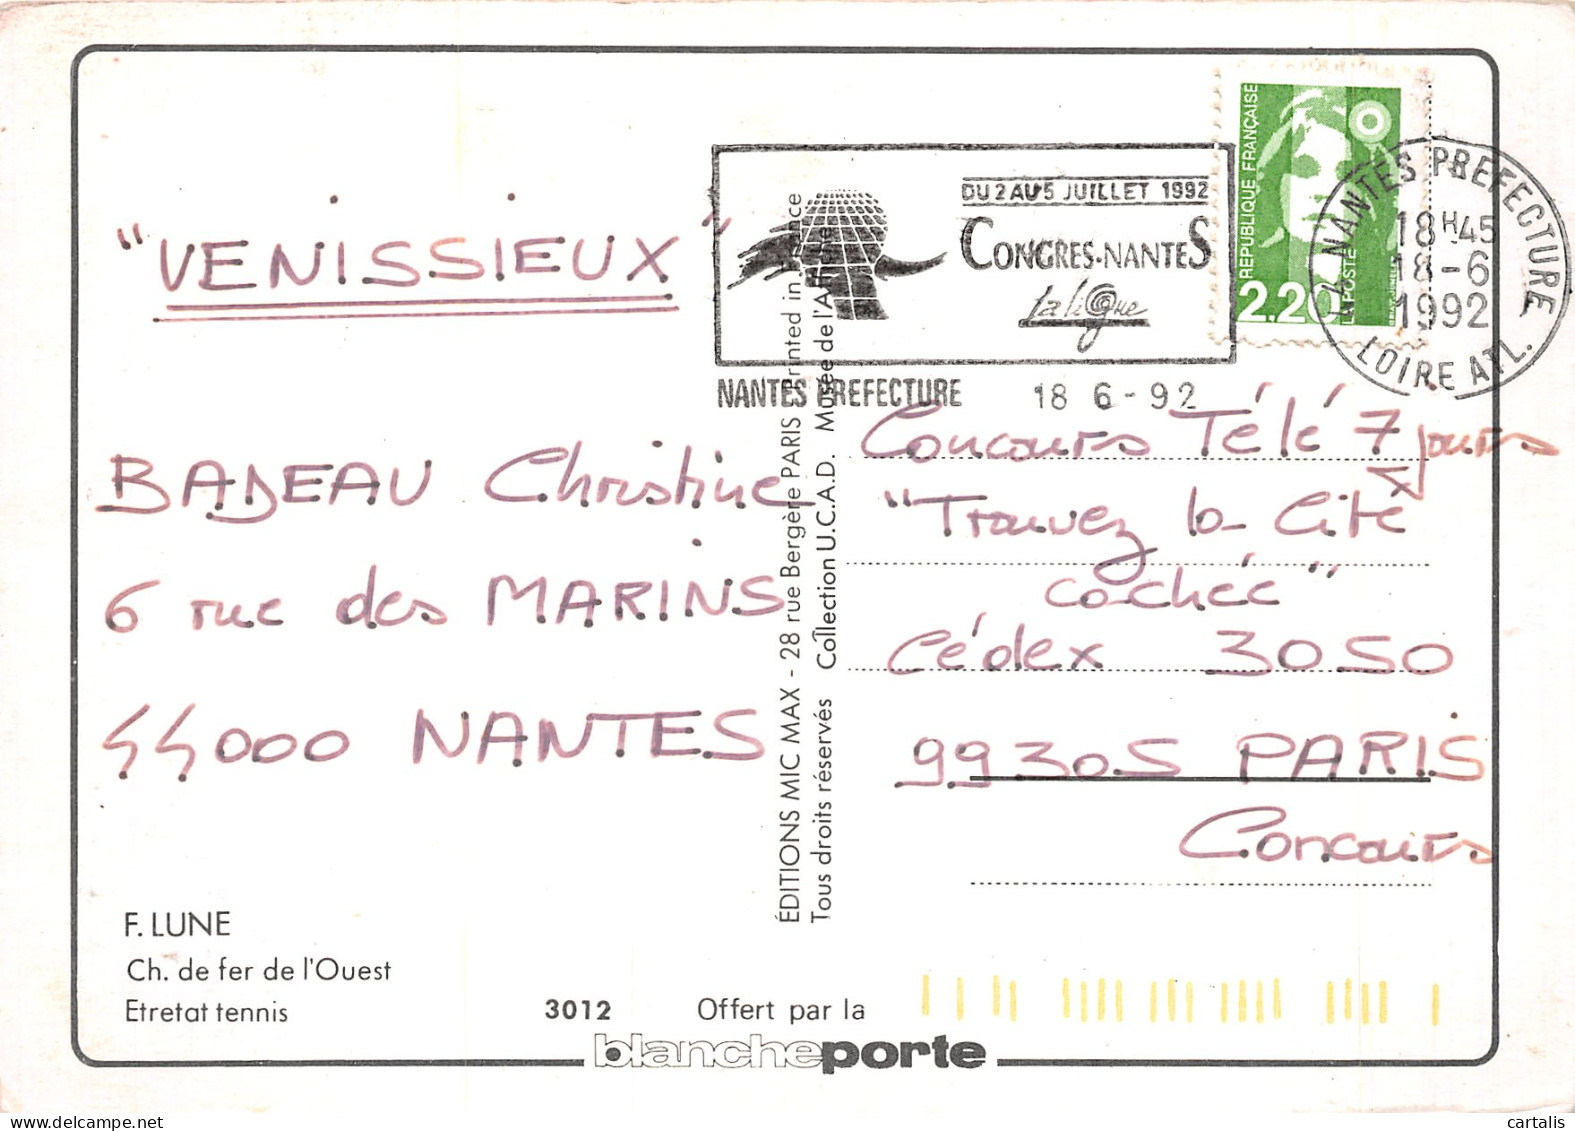 "VENISSIEUX"
BADEAU Christine
6 rue des MARINS
44000 NANTES
F. LUNE
Ch. de fer de l'Ouest
Etretat tennis
3012
Offert par la
blancheporte
ÉDITIONS MIC MAX - 28 rue Bergère PARIS Printed in France
Tous droits réservés Collection U.C.A.D. Musée de l'Affiche
DU 2 AU 5 JUILLET 1992
CONGRES-NANTES
La ligue
NANTES PREFECTURE 18 6-92
REPUBLIQUE FRANÇAISE
2.20
LA POSTE
NANTES PREFECTURE
18H45
18-6
1992
LOIRE ATL.
Concours Télé 7 jours
"Trouvez la Cité
cachée"
Cédex 3050
99305 PARIS
Concours
cartalis
delcampe.net